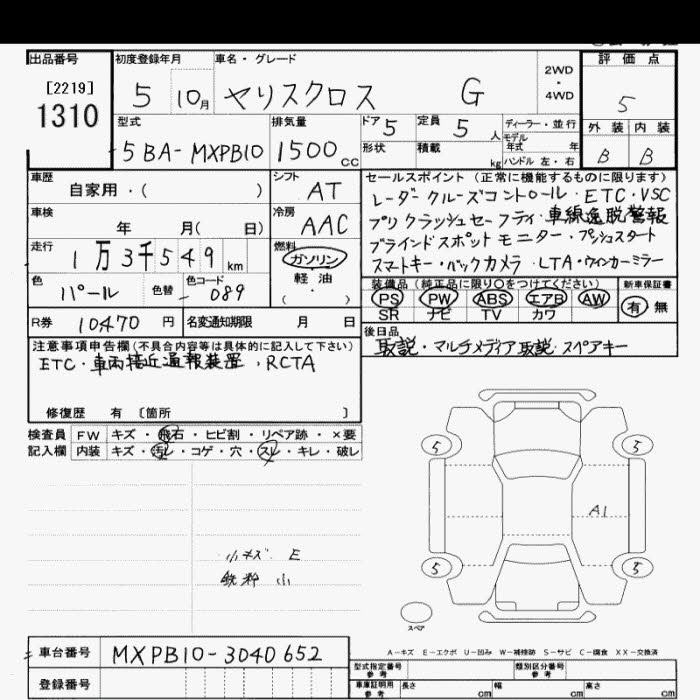 出品番号 初度登録年月 車名・グレード 評価点
[2219] 1310 5 10月 ヤリスクロス G 2WD・4WD 5
型式 排気量 ドア 5 定員 5 人 ディーラー・並行 外装 内装
5BA-MXPB10 1500cc 形状 積載 kg モデル年式 年 ハンドル 左・右 B B
車歴 自家用・( ) シフト AT セールスポイント(正常に機能するものに限ります)
レーダークルーズコントロール・ETC・VSC
車検 年 月( 日) 冷房 AAC プリクラッシュセーフティ・車線逸脱警報
走行 1万3千549km 燃料 ガソリン 軽油 ( ) ブラインドスポットモニター・プッシュスタート
スマートキー・バックカメラ・LTA・ウィンカーミラー
色 パール 色替 色コード 089 装備品(純正品に限り○をつけてください) 新車保証書
PS PW ABS エアB AW 有 無
SR ナビ TV カワ
R券 10470円 名変通知期限 月 日 後日品
取説・マルチメディア取説・スペアキー
注意事項申告欄(不具合内容等は具体的に記入して下さい)
ETC・車両接近通報装置・RCTA
修復歴 有 〔箇所 〕
検査員 FW キズ・飛石・ヒビ割・リペア跡・×要
記入欄 内装 キズ・汚レ・コゲ・穴・スレ・キレ・破レ
5 5
A1
小キズ E
鉄粉 小
5 5
スペア
A-キズ E-エクボ U-凹み W-補修跡 S-サビ C-腐食 XX-交換済
車台番号 MXPB10-3040652
型式指定番号 参考 類別区分番号 参考
登録番号 車庫証明用 参考 長さ cm 幅 cm 高さ cm